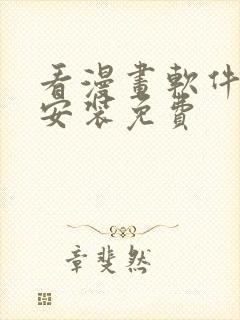 看漫畫軟件
安裝免費
章斐然